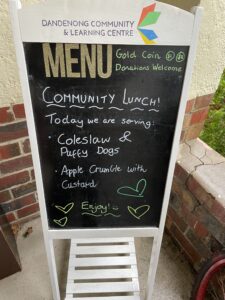 DANDENONG COMMUNITY
& LEARNING CENTRE
MENU
Gold Coin
Donations Welcome
COMMUNITY LUNCH!
Today we are serving:
• Coleslaw &
Puffy Dogs
• Apple Crumble with
Custard
Enjoy!